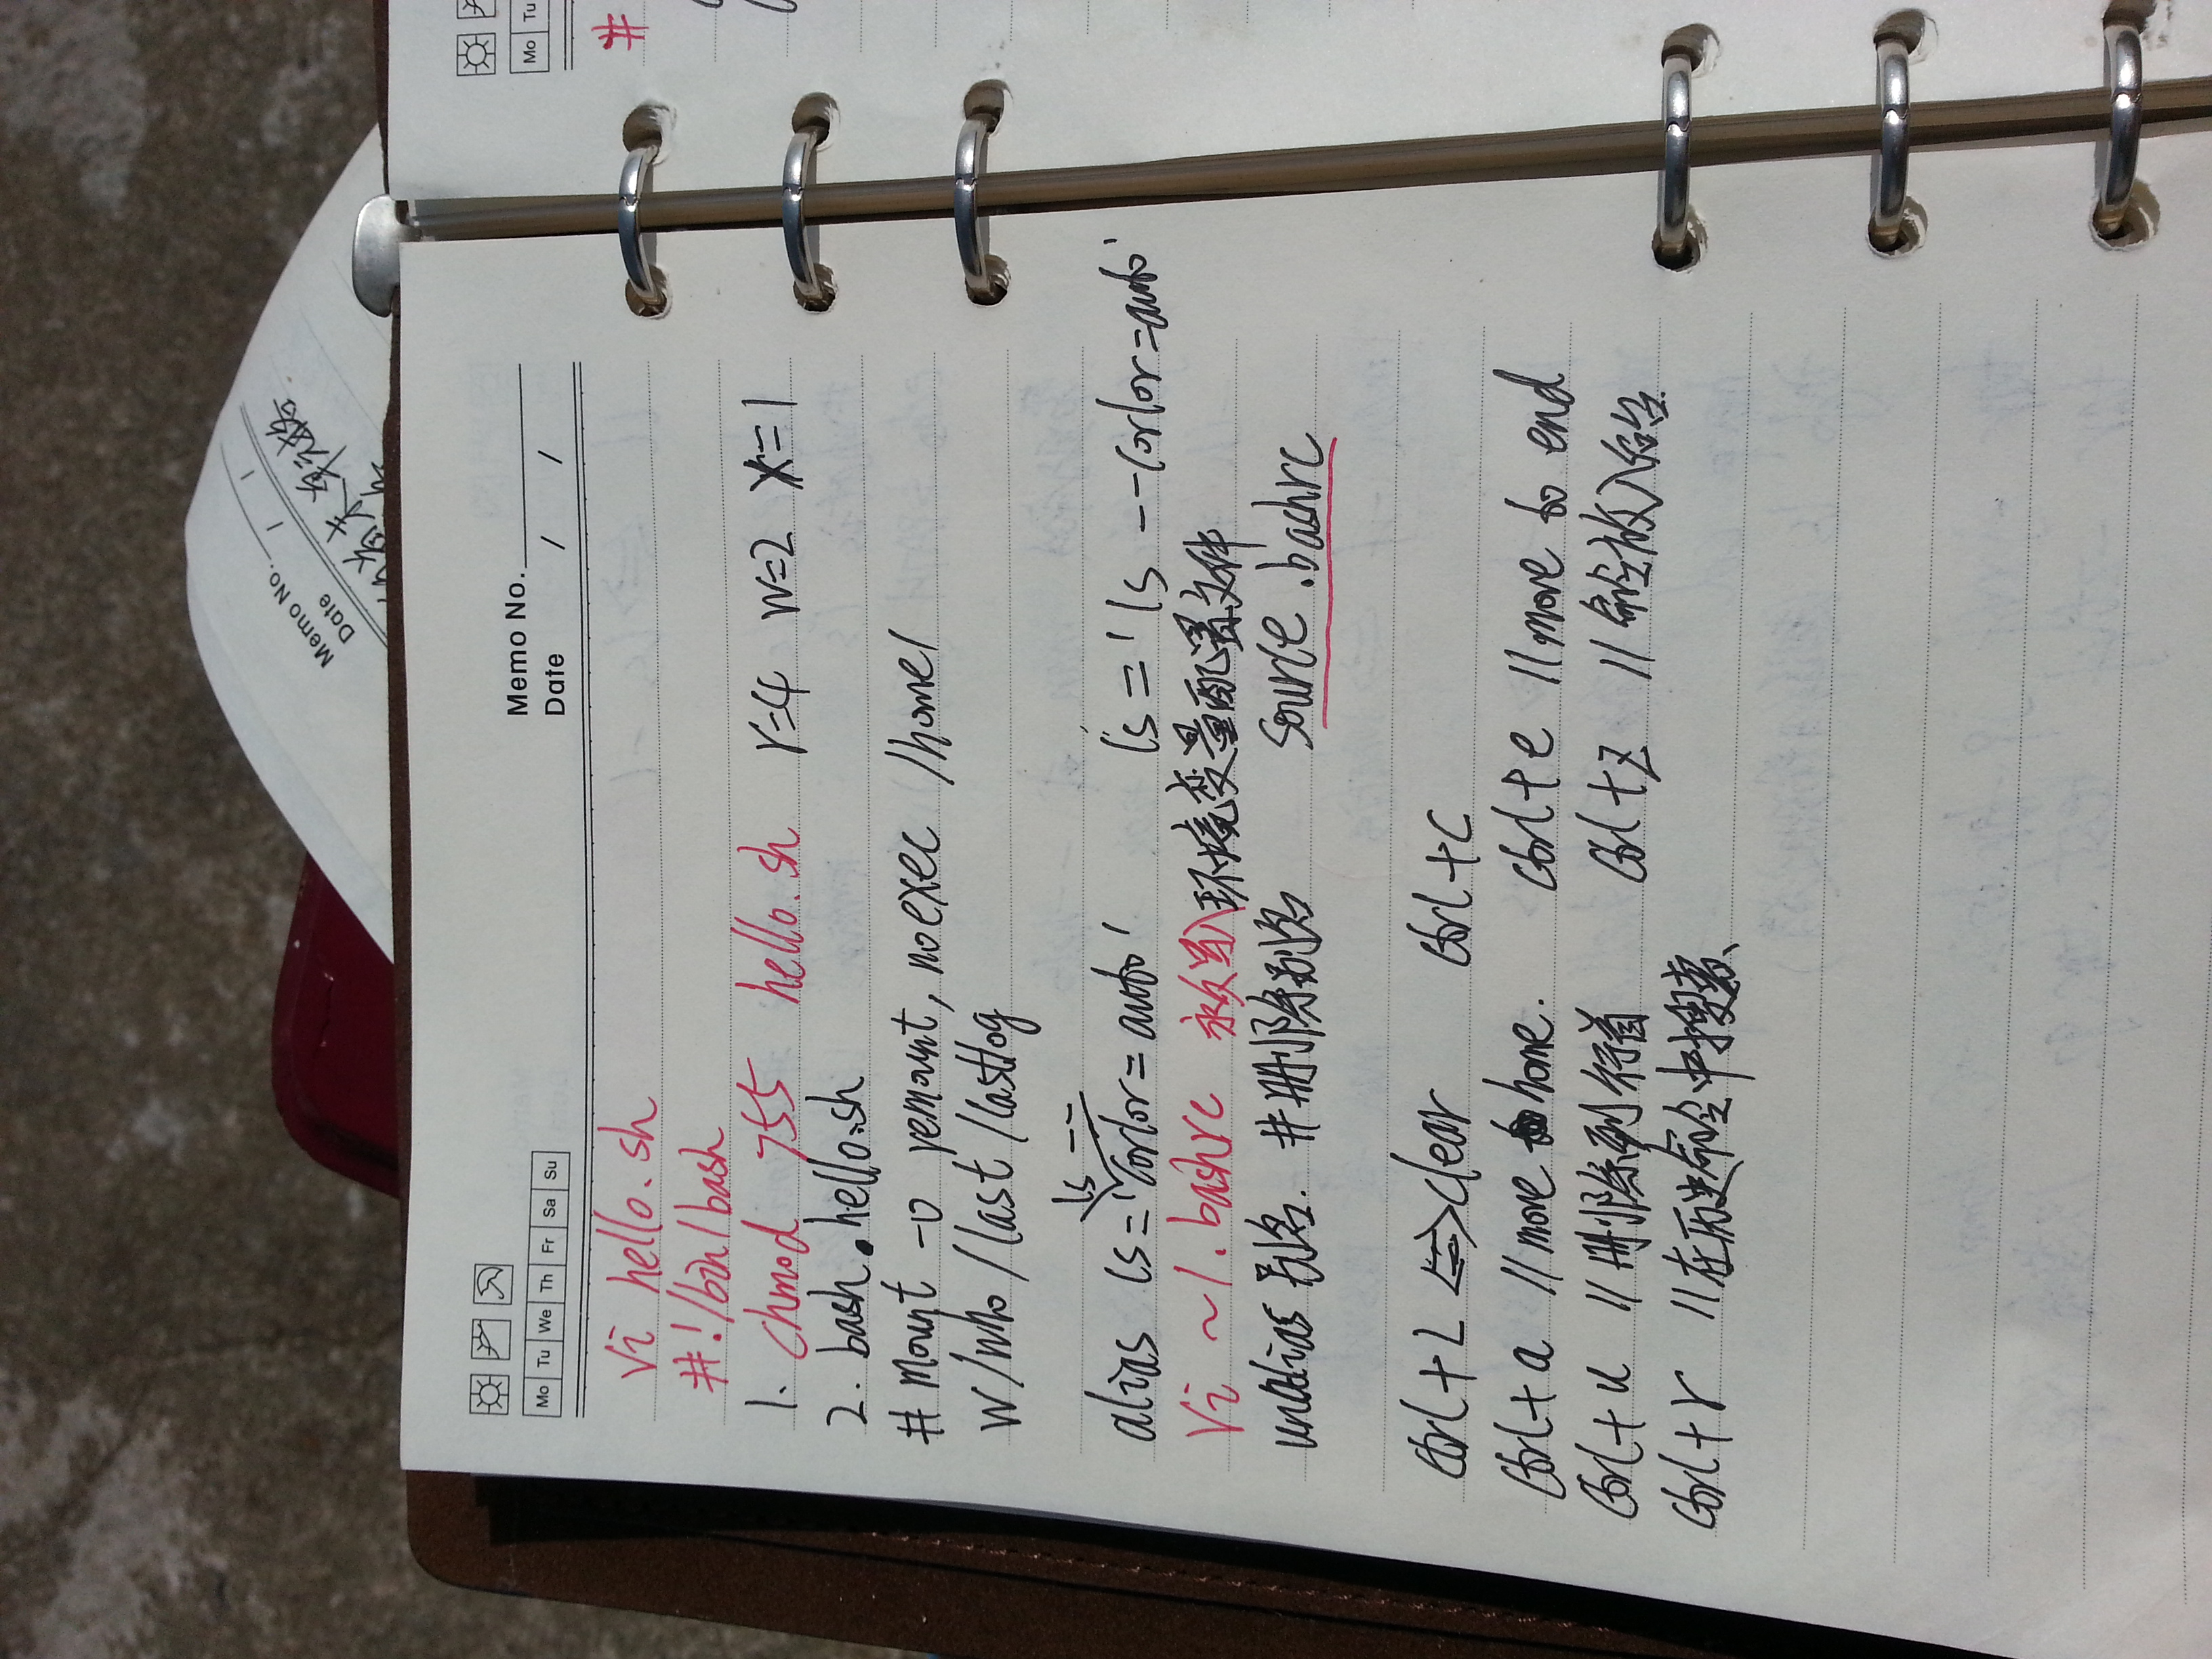 Memo No.
Date / /
尾末单元格
Mo Tu We Th Fr Sa Su
Memo No.
Date / /
Mo Tu
#
vi hello.sh
#!/bin/bash
1. chmod 755 hello.sh r=4 w=2 x=1
2. bash hello.sh
# mount -o remount,noexec /home/
w/who/last/lastlog
ls --
alias ls='corlor=auto' ls='ls --corlor=auto'
vi ~/.bashrc 永久写入环境变量配置文件
unalias 别名. #删除别名 source .bashrc
Ctrl+L <=> clear Ctrl+C
Ctrl+a //move to home. Ctrl+e //move to end
Ctrl+u //删除到行首 Ctrl+z //命令放入后台
Ctrl+r //在历史命令中搜索